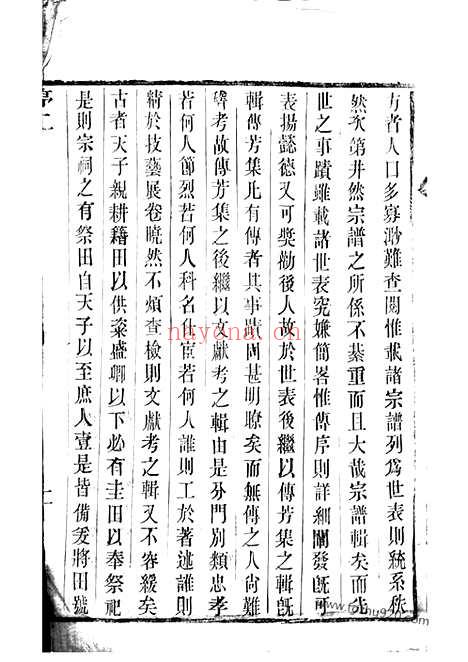 方者人口多寡渺難查閱惟載諸宗譜列為世表則統系秩
然次第井然宗譜之所係不綦重而且大哉宗譜輯矣而先
世之事蹟雖載諸世表究嫌簡畧惟傳序則詳細闡發旣可
表揚懿德又可奬勸後人故於世表後繼以傳芳集之輯旣
輯傳芳集凡有傳者其事蹟固甚明瞭矣而無傳之人尚難
稽考故傳芳集之後繼以文獻考之輯由是分門別類忠孝
若何人節烈若何人科名仕宦若何人誰則工於著述誰則
精於技藝展卷曉然不煩查檢則文獻考之輯又不容緩矣
古者天子親耕籍田以供粢盛卿以下必有圭田以奉祭祀
是則宗祠之有祭田自天子以至庶人壹是皆備爰將田號
序二
nayona.cn